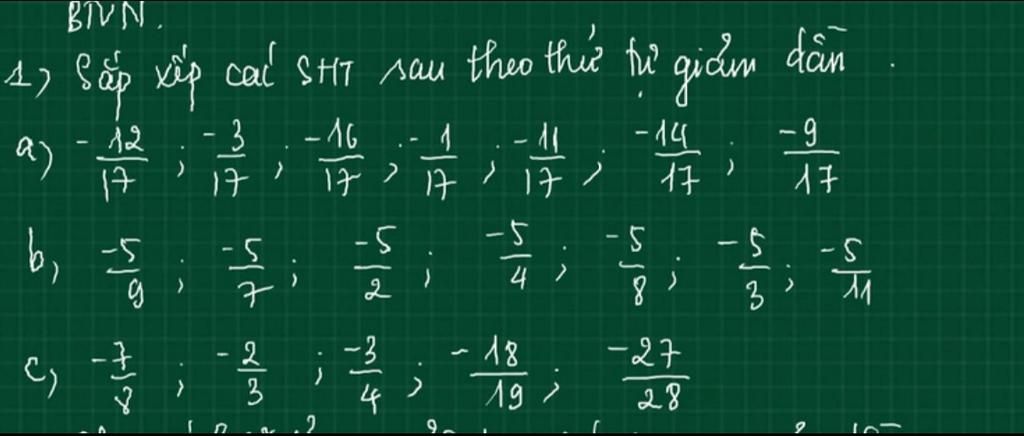 BTVN.
1) Sắp xếp các SHT sau theo thứ tự giảm dần.
a) -12/17 ; -3/17 ; -16/17 ; -1/17 ; -11/17 ; -14/17 ; -9/17
b, -5/9 ; -5/7 ; -5/2 ; -5/4 ; -5/8 ; -5/3 ; -5/11
c, -7/8 ; -2/3 ; -3/4 ; -18/19 ; -27/28